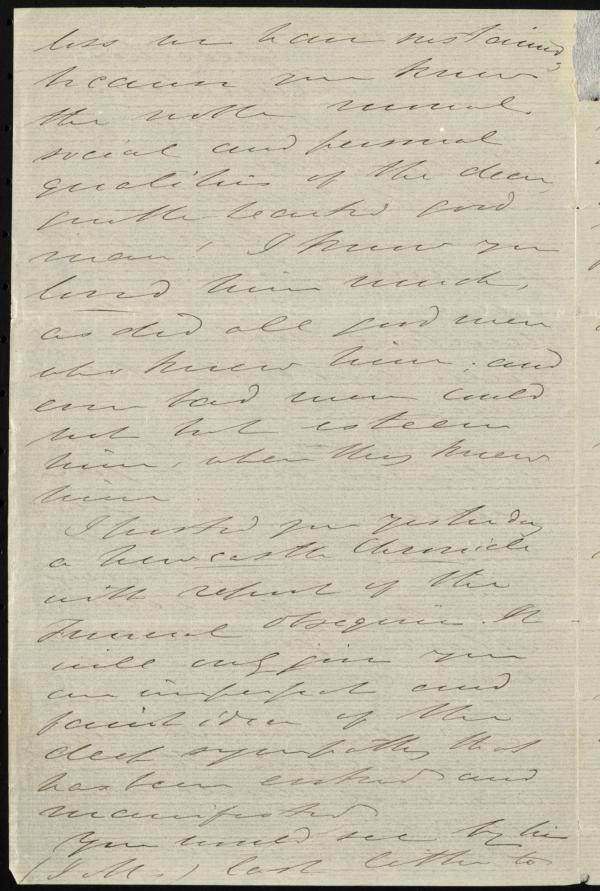 loss we have sustained,
because you knew
the noble moral,
social and personal
qualities of the dear,
gentle hearted good
man! I know you
loved him much,
as did all good men
who knew him; and
even bad men could
not but esteem
him, when they knew
him.
I posted you yesterday
a Newcastle Chronicle
with report of the
Funeral Obsequies. It
will only give you
an imperfect and
faint idea of the
deep sympathy that
has been evoked and
manifested.
You would see by his
last letter to